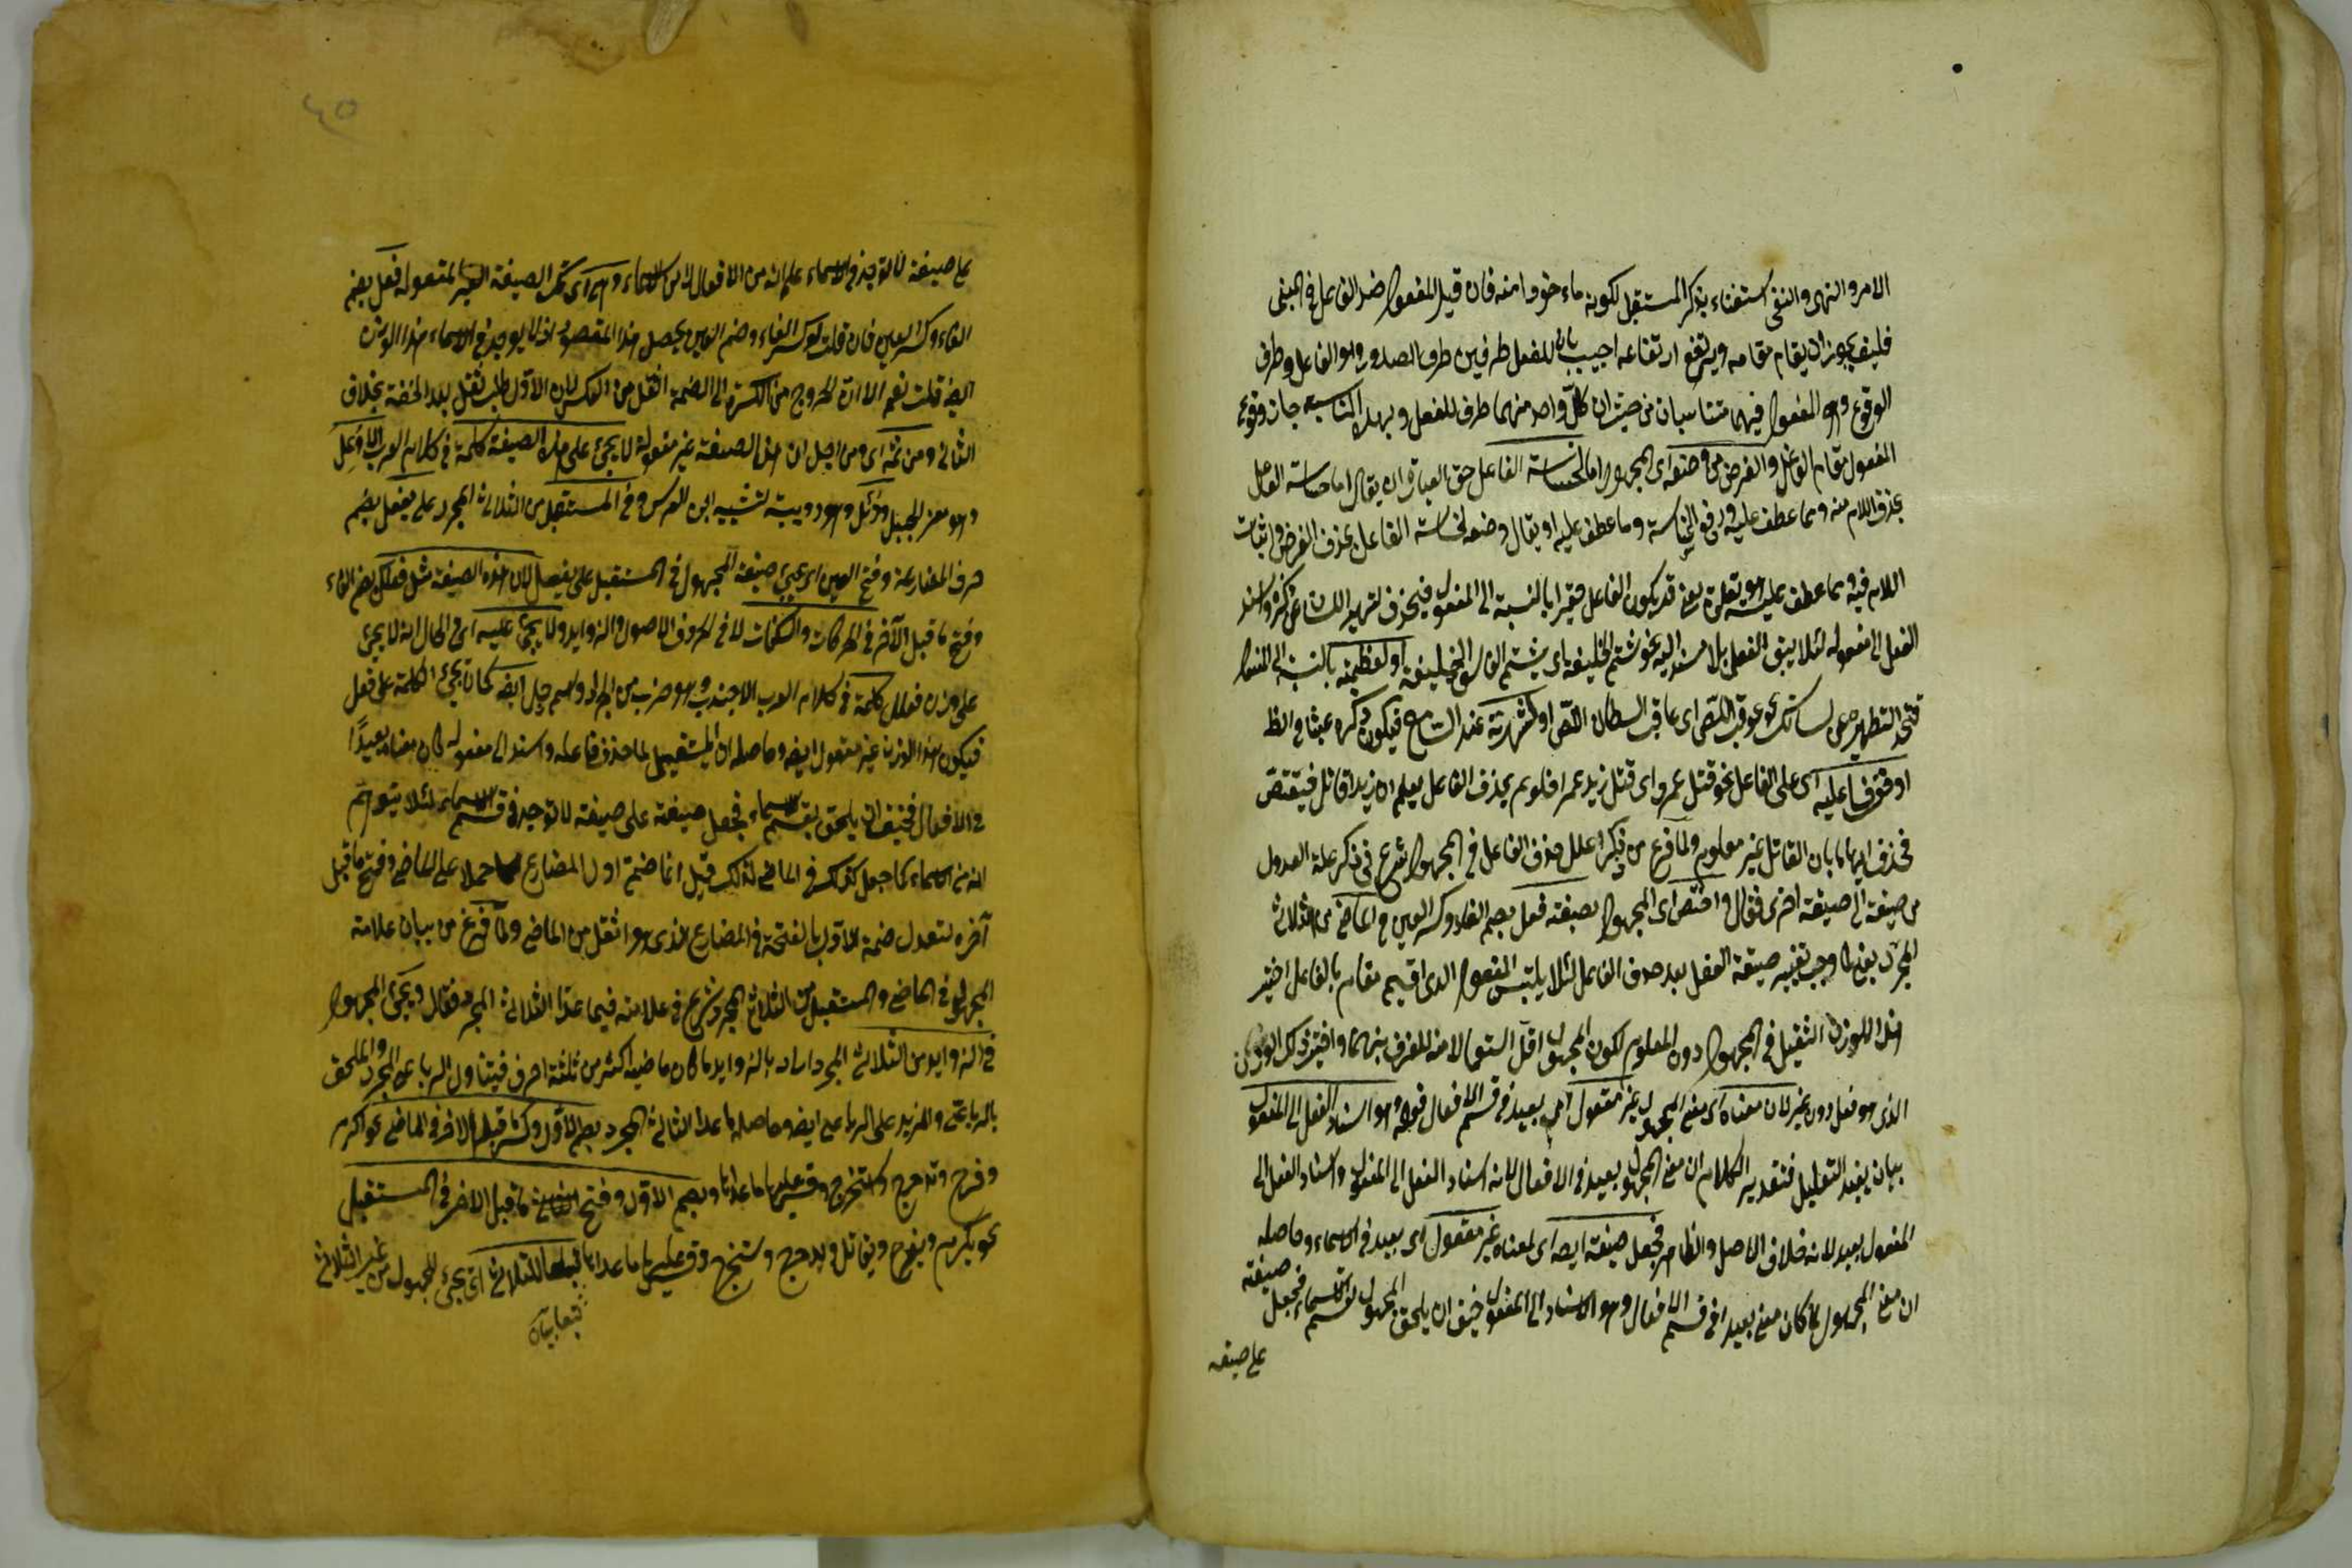 الامر والنهى والنفى استغناء بذكر المستقبل لكونه ماءخوذا منه فان قيل المفعول ضد الفاعل فى المعنى
فكيف يجوز ان يقام مقامه ويرتفع ارتفاعه اجيب بان للفعل طرفين طرف الصدور وهو الفاعل وطرف
الوقوع وهو المفعول فهما متناسبان من حيث ان كل واحد منهما طرف للفعل وبهذا المناسبه جاز وقوع
المفعول مقام الفاعل والغرض من وضعه اى المجهول اما لخساسة الفاعل حق العبارة ان يقال اما خساسة الفاعل
بحذف اللام منه ومما عطف عليه ورفع الخساسة وما عطف عليه او يقال وضعه لخساسة الفاعل بحذف الغرض واثبات
اللام فيه ومما عطف عليه يعنى قد يكون الفاعل حقيرا بالنسبة الى المفعول فيحذف لتطهير اللسان عن ذكره واسند
الفعل الى مفعوله لئلا يبقى الفعل بلا مسند اليه نحو شتم الخليفة اى شتم الفاسق الخليفة او لعظمته بالنسبة الى المفعول
نحو عوقب اللص اى عاقب السلطان اللص او لشهرته عند السامع فيكون ذكره عبثا فى الظ
او خوفا عليه اى على الفاعل نحو قتل عمرو اى قتل زيد عمرا فلو لم يحذف الفاعل يعلم ان زيدا قاتل فيقتص
فحذف ايهاما بان القاتل غير معلوم ولما فرغ من ذكر علل حذف الفاعل فى المجهول شرع فى ذكر علة العدول
من صيغة الى صيغة اخرى فقال واختص اى المجهول بصيغة فعل بضم الفاء وكسر العين فى الماضى من الثلاثى
المجرد يعنى لما وجب تغيير صيغة الفعل بعد حذف الفاعل لئلا يلتبس المفعول الذى اقيم مقام بالفاعل اختير
هذا الوزن الثقيل فى المجهول دون المعلوم لكون المجهول اقل استعمالا منه للفرق بينهما واختير ذلك الوزن
الذى هو فعل دون غيره لان معناه اى معنى المجهول غير معقول اى بعيد فى قسم الافعال فقوله وهو اسناد الفعل الى المفعول
بيان يفيد التعليل فتقدير الكلام ان معنى المجهول بعيد فى الافعال لانه اسناد الفعل الى المفعول واسناد الفعل الى
المفعول بعيد لانه خلاف الاصل والظاهر فجعل صيغته ايضا اى لمعناه غير معقول اى بعيد فى الاسماء وحاصله
ان معنى المجهول لما كان معنى بعيدا فى قسم الافعال وهو الاسناد الى المفعول خيف ان يلحق المجهول بقسم الاسماء فجعل صيغته
على صيغه
على صيغة لا توجد فى الاسماء علم انه من الافعال لا من الاسماء وهى اى تلك الصيغة الغير المعقولة فعل بضم
الفاء وكسر العين فان قلت لو كسر الفاء وضم العين يحصل هذا المقصود اذ لا يوجد فى الاسماء هذا الوزن
ايضا قلت نعم الا ان الخروج من الكسرة الى الضمة اثقل من العكس لان الاول طلب ثقل بعد الخفة بخلاف
الثانى ومن ثمه اى ومن اجل ان هذه الصيغة غير معقولة لا يجئ على هذه الصيغة كلمة فى كلام العرب الا وعل
وهو معز الجبل ودئل وهو دويبة تشبيه ابن العرس وفى المستقبل من الثلاثى المجرد على يفعل بضم
حرف المضارعة وفتح العين اى يجئ صيغة المجهول فى المستقبل على يفعل لان هذه الصيغة مثل فعلل بضم الفاء
وفتح ما قبل الآخر فى الحركات والسكنات لا فى الحروف الاصول والزوايد ولا يجئ عليه اى فى الحال انه لا يجئ
على وزن فعلل كلمة فى كلام العرب الا جندب وهو ضرب من الجراد واسم رجل ايضا كما لا يجئ الكلمة على فعل
فيكون هذا الوزن غير معقول ايضا وحاصله ان المستقبل لما حذف فاعله واسند الى مفعوله كان معناه بعيدا
فى الافعال فخيف ان يلحق بقسم الاسماء فجعل صيغته على صيغة لا توجد فى قسم الاسماء لئلا يتوهم
انه من الاسماء كما جعل كذلك فى الماضى لذلك قيل انما ضم اول المضارع حملا على الماضى وفتح ما قبل
آخره لتعدل ضمة الاول بالفتحة فى المضارع الذى هو اثقل من الماضى ولما فرغ من بيان علامة
المجهول فى الماضى والمستقبل من الثلاثى المجرد شرع فى علامته فيما عدا الثلاثى المجرد فقال ويجئ المجهول
فى الزوايد من الثلاثى المجرد اراد بالزوايد ما كان ماضيه اكثر من ثلثة احرف فيتناول الرباعى المجرد والملحق
بالرباعى والمزيد على الرباعى ايضا وحاصله ما عدا الثلاثى المجرد بضم الاول وكسر ما قبل الاخر فى الماضى نحو اكرم
وفرح وتدحرج واستخرج وقس عليها ما عداها وبضم الاول وفتح ما قبل الاخر فى المستقبل
نحو يكرم ويفرح ويقاتل ويدحرج ويستخرج وقس عليها ما عداها تبعا للثلاثى اى يجئ المجهول من غير الثلاثى